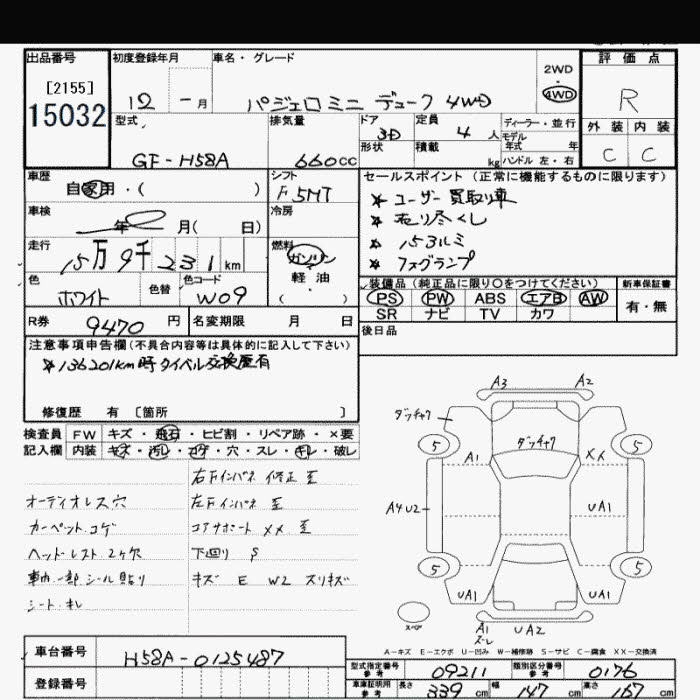 出品番号
[2155]
15032
初度登録年月
12 - 月
車名・グレード
パジェロミニ デューク 4WD
2WD
・
4WD
評価点
R
外装 内装
C C
型式
GF-H58A
排気量
660cc
ドア
3D
形状
定員
4 人
積載
kg
ディーラー・並行
モデル
年式 年
ハンドル 左・右
車歴
自家用・( )
シフト
F5MT
車検
年 月( 日)
冷房
走行
15万9千231km
燃料
ガソリン
・
軽油
( )
色
ホワイト
色替
色コード
W09
セールスポイント(正常に機能するものに限ります)
* ユーザー買取り車
* 売り尽くし
* 153ルミ
* フォグランプ
装備品(純正品に限り○をつけてください)
PS PW ABS エアB AW
SR ナビ TV カワ
新車保証書
有・無
R券
9470 円
名変期限 月 日
後日品
注意事項申告欄(不具合内容等は具体的に記入して下さい)
* 136201km時タイベル交換歴有
修復歴 有 [箇所 ]
検査員
記入欄
FW キズ・飛石・ヒビ割・リペア跡・×要
内装 キズ・汚レ・コゲ・穴・スレ・キレ・破レ
オーディオレス穴
カーペットコゲ
ヘッドレスト2ヶ欠
車内一部シール貼り
シートキレ
右Fインパネ 修正 歪
左Fインパネ 歪
コアサポート XX 歪
下廻り S
キズ E W2 スリキズ
A3 A2
ダッチャク
5 5
A1 ダッチャク XX
A4U2 UA1
5 5
UA1 UA1
スペア
A1 UA2
スレ
A-キズ E-エクボ U-凹み W-補修跡 S-サビ C-腐食 XX-交換済
車台番号
H58A-0125487
登録番号
型式指定番号
参考
09211
類別区分番号
参考
0176
車庫証明用
参考
長さ 339 cm 幅 147 cm 高さ 167 cm